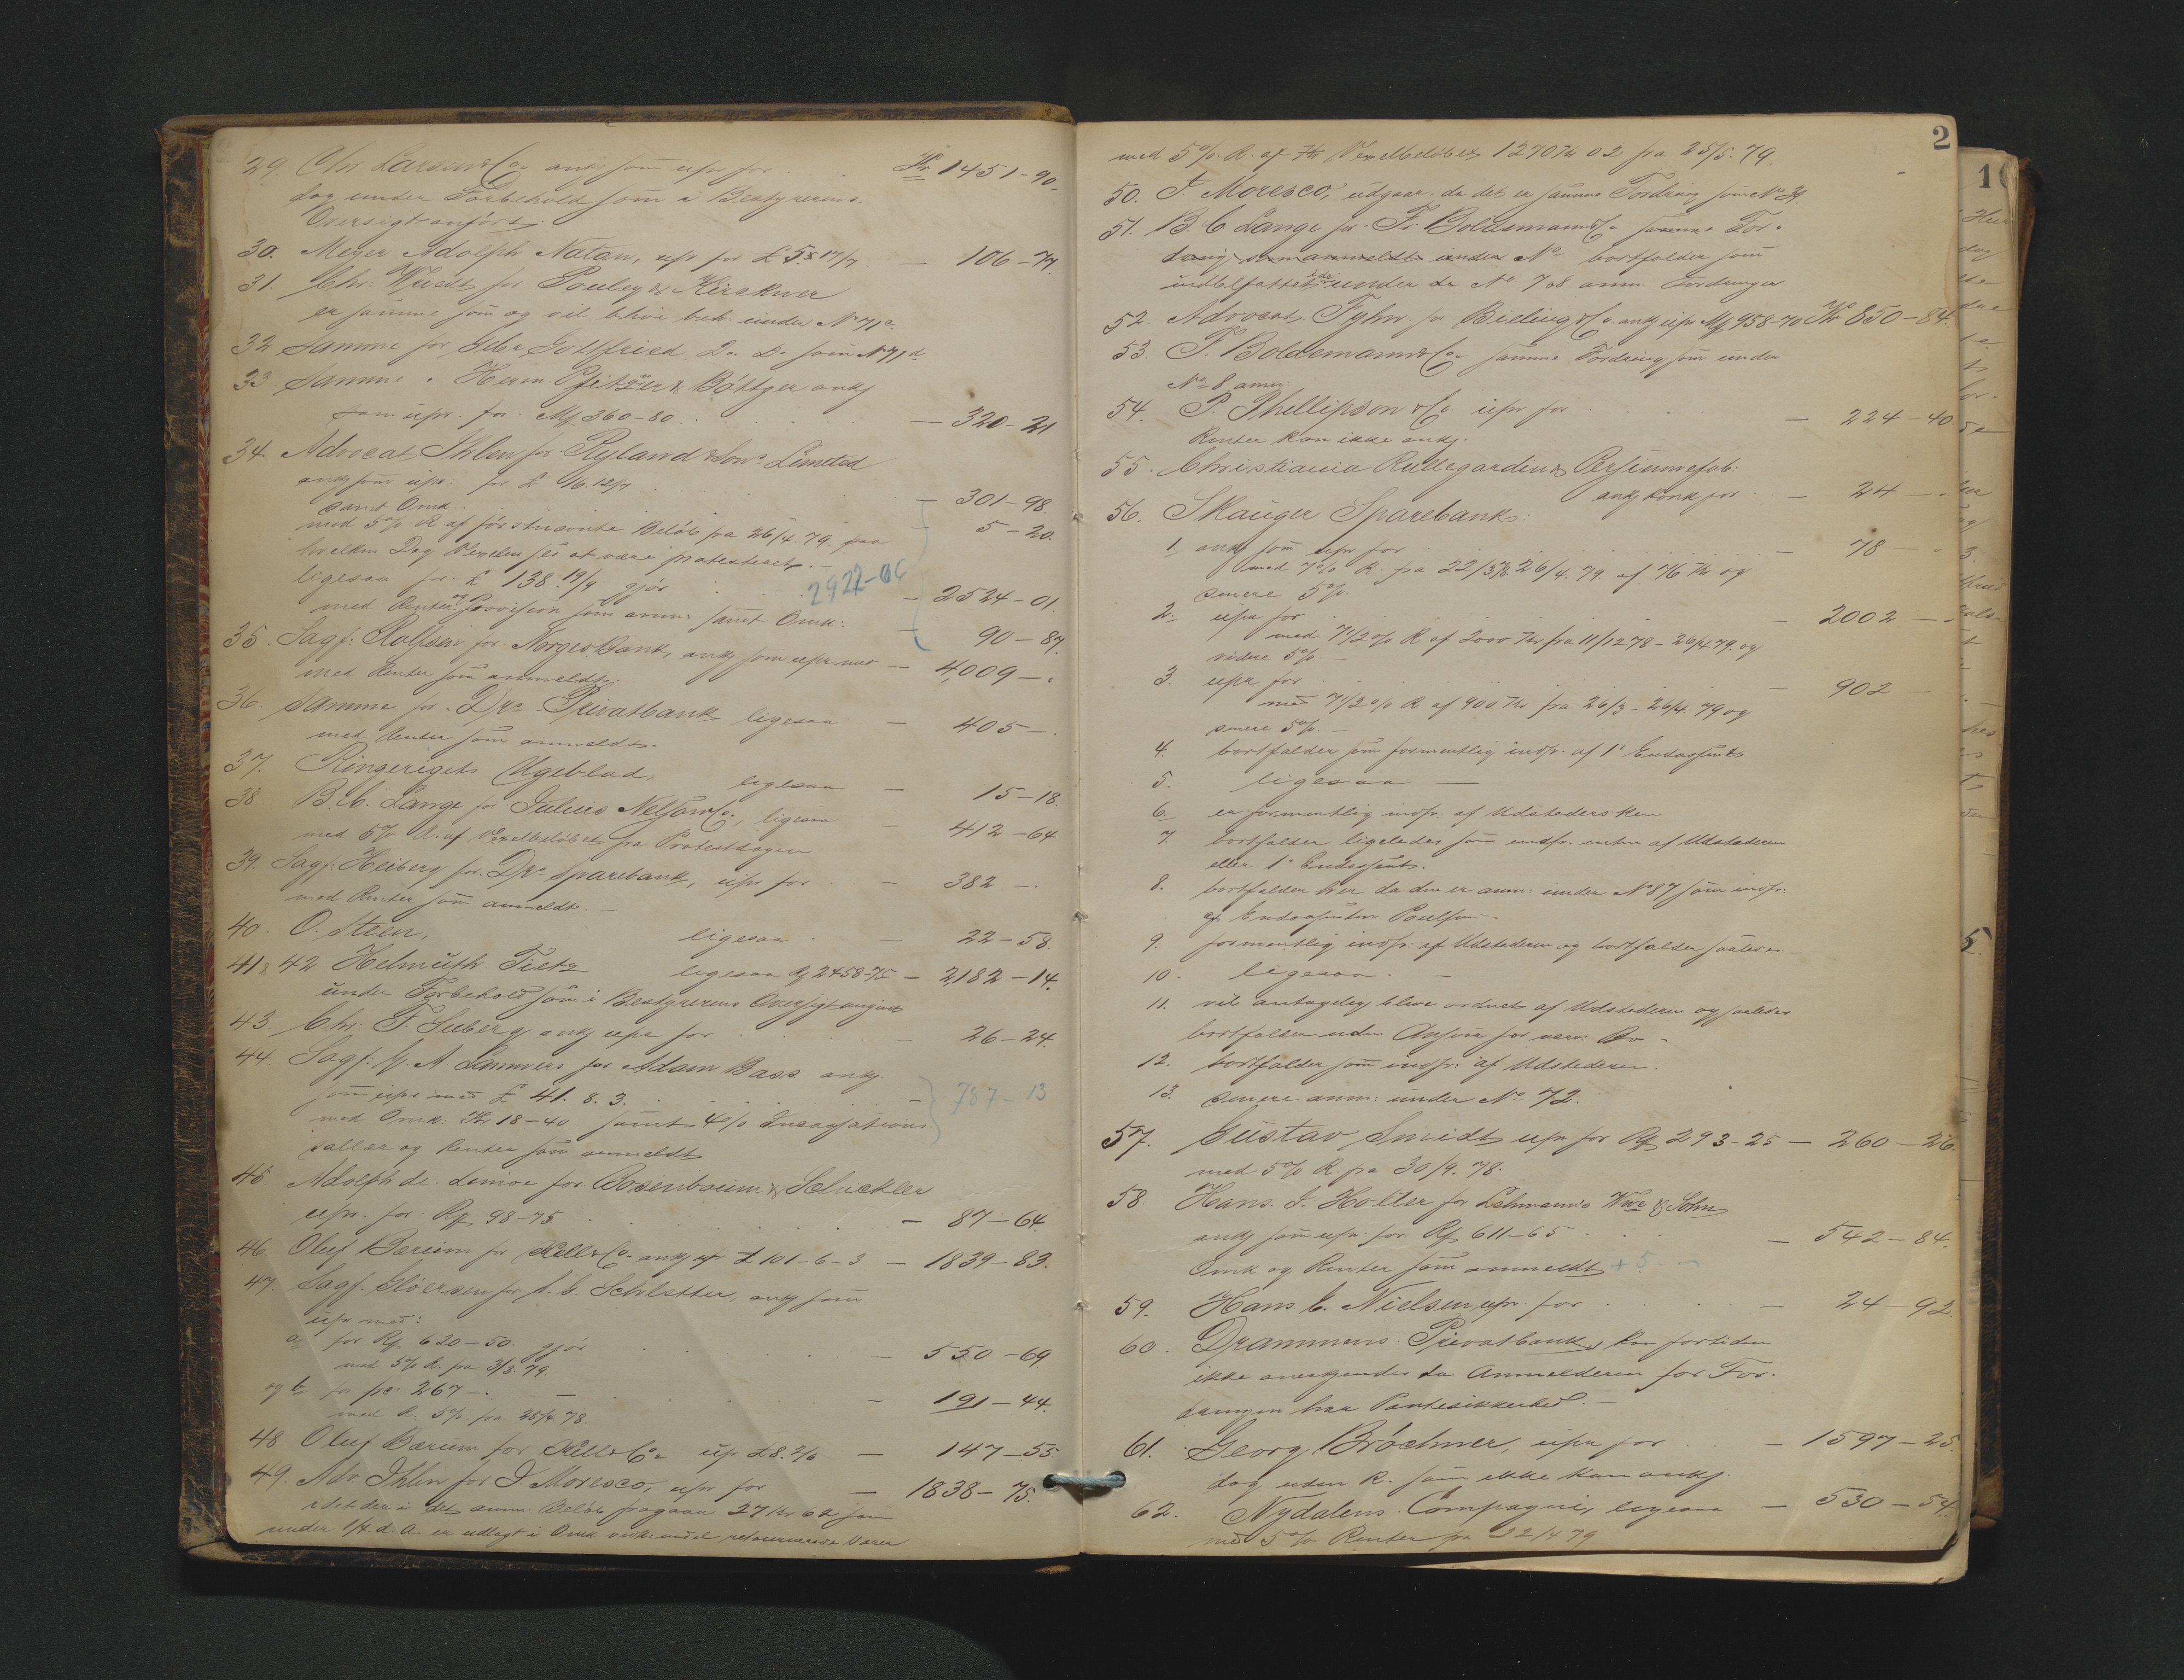 29. Chr Larsen & Co ankj som upr for Kr 1451-90
dog under Forbehold som i Bestyrerens
Oversigt anført.
30. Meyer Adolph Natan, upr for £ 5 " 17/7 — 106-74
31. Chr: for & Kirckner
er samme som og vil blive beh. under No 71c.
32 Samme for Gebr Gottfried Do Do som No 71 d.
33. Samme " Herm Pfitzner & Böttger ankj
som upr. for Mf 360-80 — 320-21
34. Advocat Ihlen for Ryland & Sons Limited
ankj som upr: for £ 16.12/7 — 301-98.
samt Omk. 5-20.
med 5% R af førstnævnte Beløb fra 26/4.79. paa
hvilken Dag Vexelen sees at være protesteret.
ligesaa for £ 138.19/9 gjør 2922-06 — 2524-01
med Renter og Provision som anm: samt Omk: 90-87.
35. Sagf. Rolfsen for Norges Bank, ankj som upr med — 4009-"
med Renter som anmeldt.
36. Samme for Drs Privatbank ligesaa — 405-"
med Renter som anmeldt.
37. Ringeriges Ugeblad, ligesaa — 15-18.
38 B.C. Lange for Julius & Co., ligesaa — 412-64
med 5% R. af Vexelbeløbet fra Protestdagen
39. Sagf. Heiberg for Drs Sparebank, upr for — 382-"
med Renter som anmeldt.
40. O. Steen, ligesaa — 22-58.
41 & 42 Helmuth Tietz ligesaa Rf 2458-75 — 2182-14.
under Forbehold som i Bestyrerens Oversigt angivet
43. Chr. F. ankj upr for — 26-24.
44. Sagf. A. Lammers for Adam Bass ankj
som upr med £ 41. 8. 3. 787-13
med Omk. Kr 18-40 samt 4% Incassations
sallær og Renter som anmeldt
45 Adolph de Limoe for Rosenbaum & Schickler
upr. for Rf 98-75 — 87-64.
46. Oluf Bærum for Kell & Co. ankj upr £ 101-6-3 — 1839-83.
47. Sagf. Gløersen for Schlatter, ankj som
upr med:
a for Rf 620-50. gjør — 550-69
med 5% R. fra 3/3.79.
og b for frc 267-. — 191-44.
med R. 5% fra 25/4.78.
48 Oluf Bærum for Kell & Co upr £8.2/6 — 147-55
49. Adv. Ihlen for J. Moresco, upr for — 1838-75.
idet der i det anm. Beløb fragaar 27 Kr 62 som
under 1/4 d. A. er udlagt i Omk. returnerede Varer
2
med 5% R. af Vexelbeløbet 1270 Kr 02 fra 25/5.79.
50. J. Moresco, udgaar, da det er samme Fordring som No 39.
51. B. C. Lange for Fr Boldemann & Co samme For-
dring som anmeldt under No bortfalder som
indbefattet under de No 7 & 8 anm. Fordringer
52. Advocat Fyhn for Bieling & Co. ankj upr Mf 958-70 Kr 850-84.
53. F. Boldemann & Co samme Fordring som under
No 8 anm:
54. P. Phillipson & Co upr for — 224-40
Renter kan ikke ankj.
55. Christiania Rullegardin & Persiennefab:
ankj konk for — 24-"
56. Skauger Sparebank
1. ankj som upr for — 78-"
med 7% R. fra 22/3 78. 26/4.79. af 76 Kr og
senere 5%.
2. upr for — 2002-"
med 7 1/2% R af 2000 Kr fra 11/12 78 - 26/4 79. og
videre 5%.
3. upr for — 902-
med 7 1/2% R af 900 Kr fra 26/3 - 26/4 79 og
senere 5%.
4. bortfalder som formentlig indfr: af 1e Endossent
5. ligesaa —
6. er formentlig indfr. af Udstederske
7. bortfalder ligeledes som indfr. enten af Udstederen
eller 1e Endossent.
8. bortfalder her da den er anm: under No 87 som indfr:
af Endossenten Poulsen.
9. formentlig indfr: af Udstederen og bortfalder saaledes.
10. ligesaa. —
11. vil antagelig blive ordnet af Udstederen og saaledes
bortfalde uden Ansvar for nærv: Bo —
12. bortfalder som indfr: af Udstederen.
13. senere anm: under No 72.
57. Gustav Smidt upr for Rf 293-25 — 260-26.
med 5% R. fra 30/9.78.
58. Hans J. Holter for Lehmann's Wwe & Sohn
ankj som upr for Rf 611-65 — 542-84.
Omk og Renter som anmeldt + 5 —
59. Hans C. Nielsen, upr. for — 24-92.
60. Drammens Privatbank, kan fortiden
ikke anerkjendes da Anmelderen for For-
dringen har Pantesikkerhed.
61. Georg Bröchner, upr for — 1597-25
dog uden R. som ikke kan ankj.
62. Nydalens Compagni, ligesaa — 530-54.
med 5% Renter fra 22/4 79